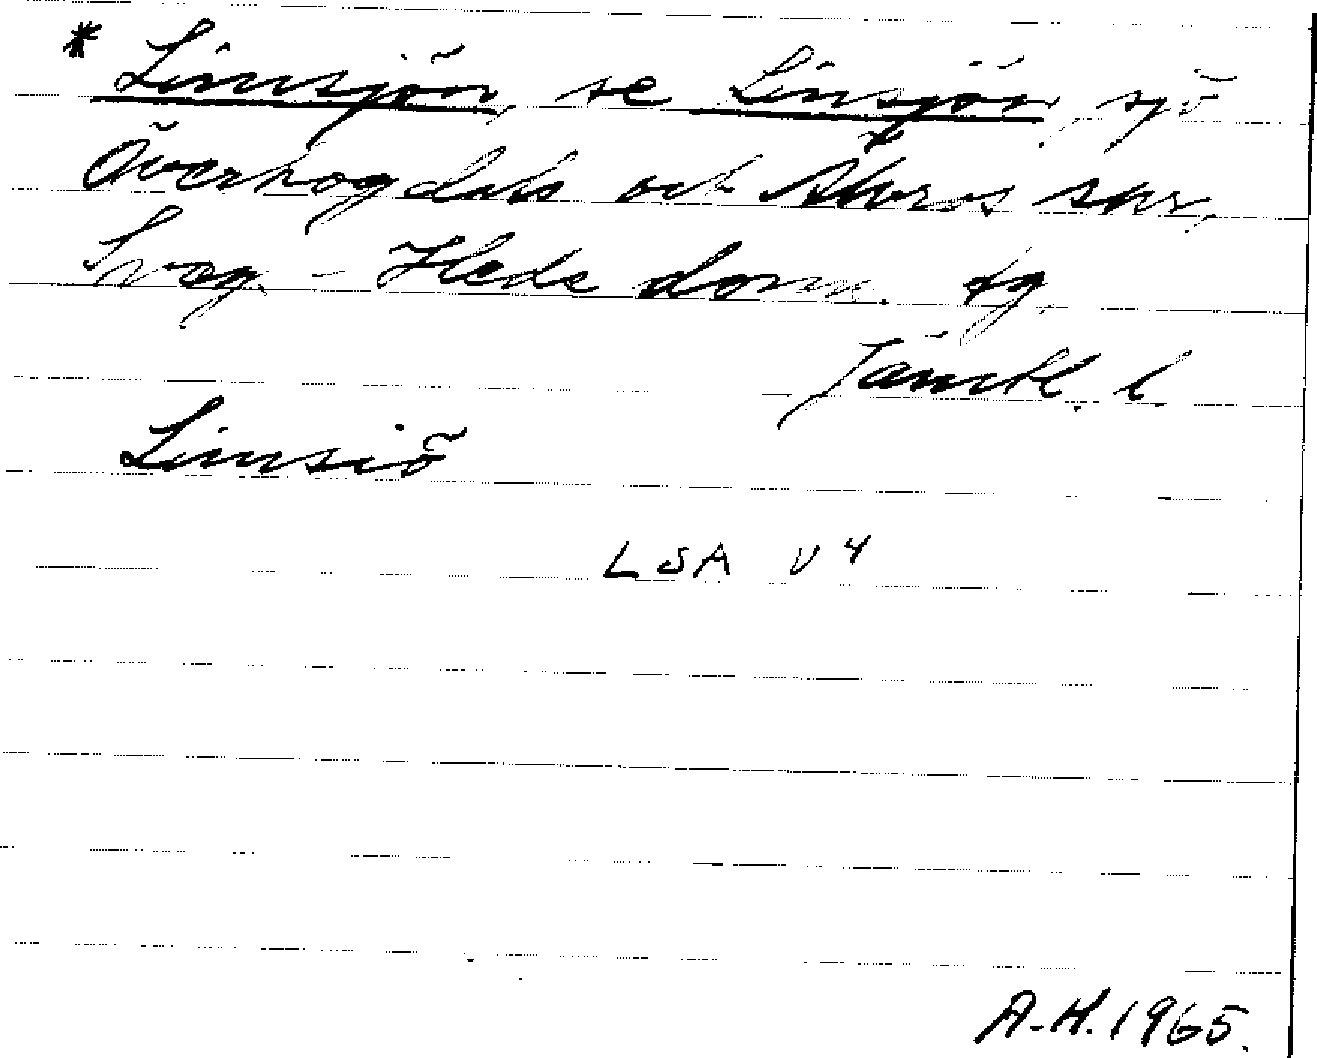 * Linsjön, se Linsjön, sjö
Överhogdals och Älvros snr,
Sveg. - Hede doms. tg.
Jämtl. l.
Linsiö
LSA V4
A-H. 1965.